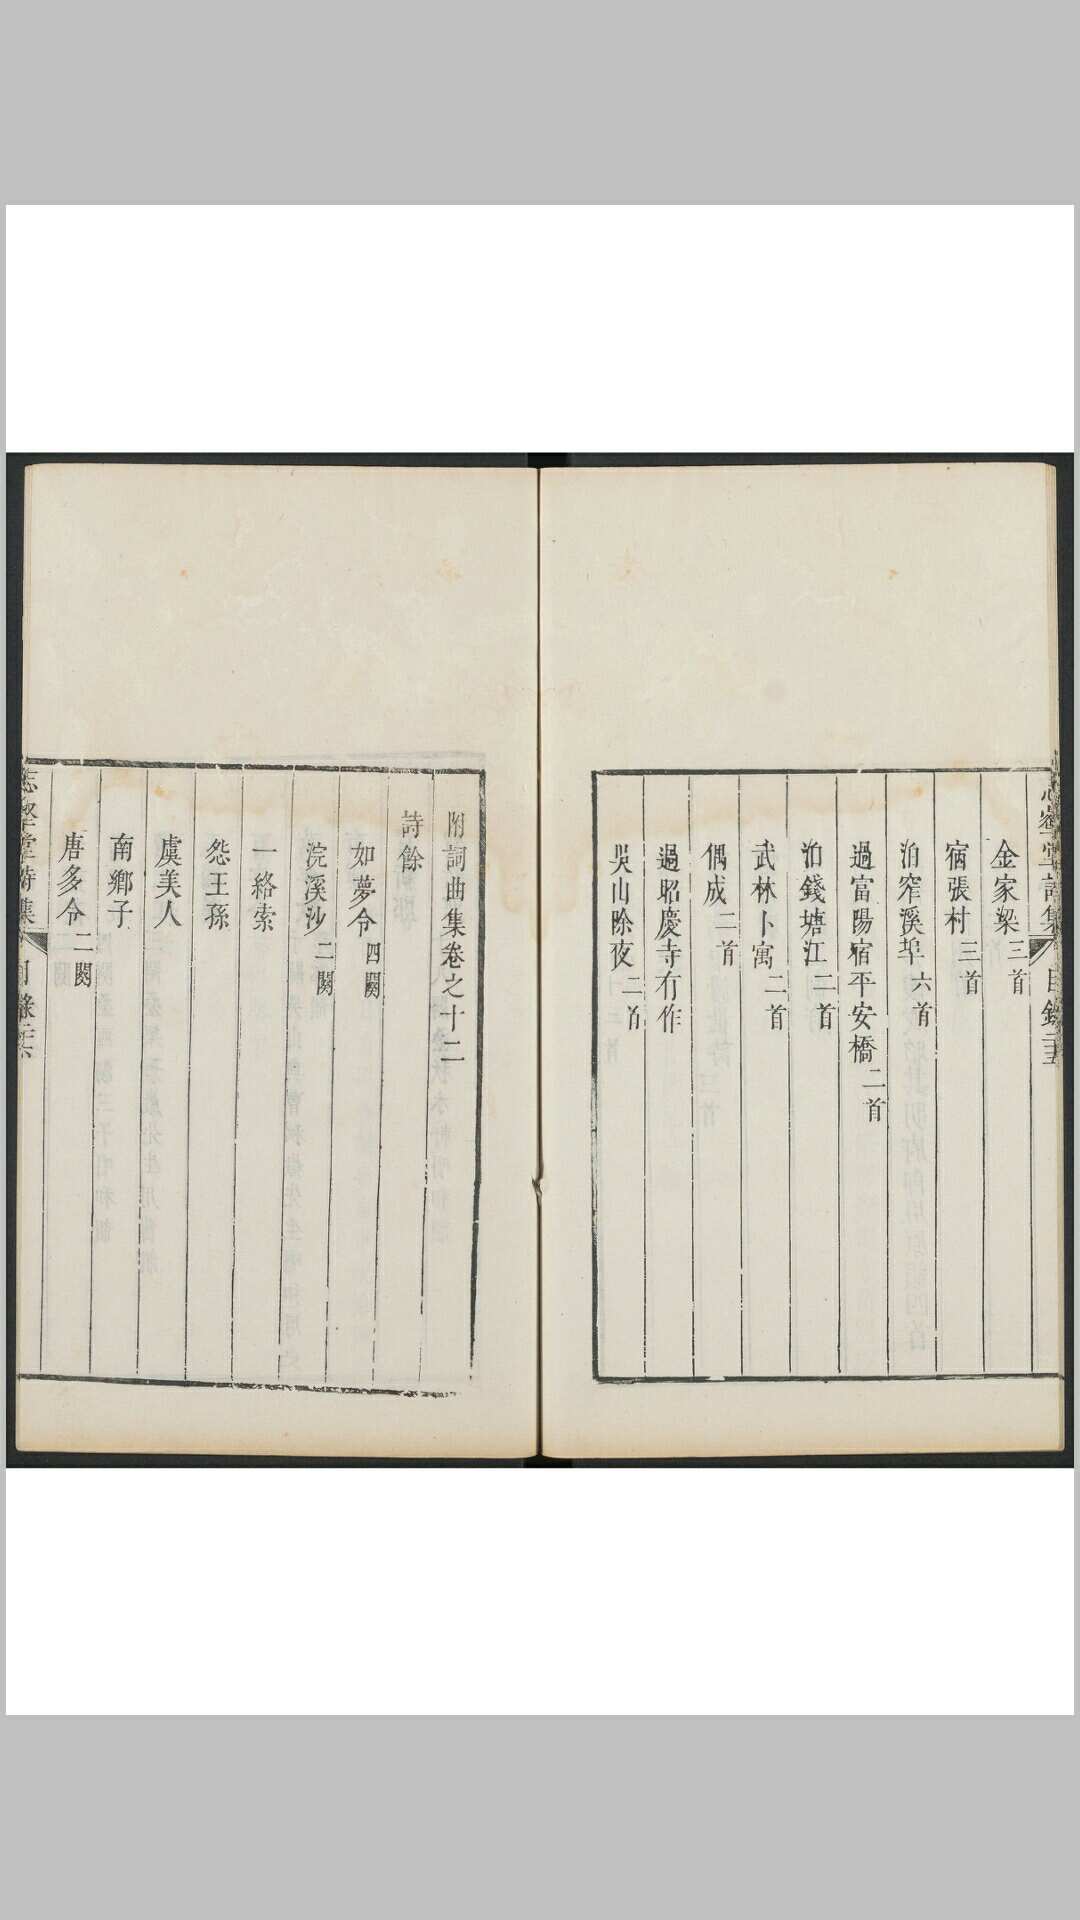 金家梁三首
宿張村三首
泊窄溪埠六首
過富陽宿平安橋二首
泊錢塘江二首
武林卜寓二首
偶成二首
過昭慶寺有作
吳山除夜二首
附詞曲集卷之十二
詩餘
如夢令四闋
浣溪沙二闋
一絡索
怨王孫
虞美人
南鄉子
唐多令二闋
堂詩集
目錄